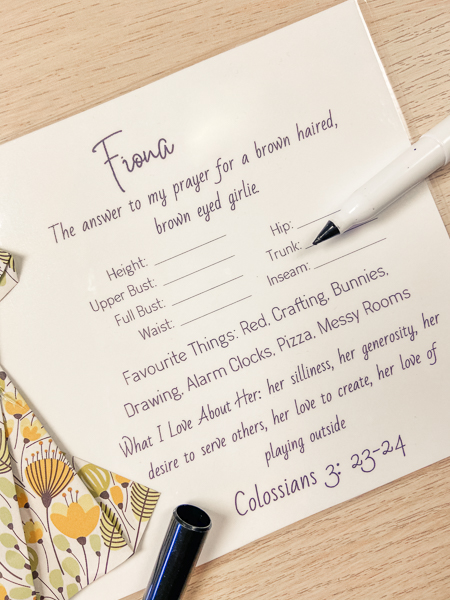 Fiona
The answer to my prayer for a brown haired,
brown eyed girlie.
Height:
Upper Bust:
Full Bust:
Waist:
Hip:
Trunk:
Inseam:
Favourite Things: Red, Crafting, Bunnies,
Drawing, Alarm Clocks, Pizza, Messy Rooms
What I Love About Her: her silliness, her generosity, her
desire to serve others, her love to create, her love of
playing outside
Colossians 3: 23-24